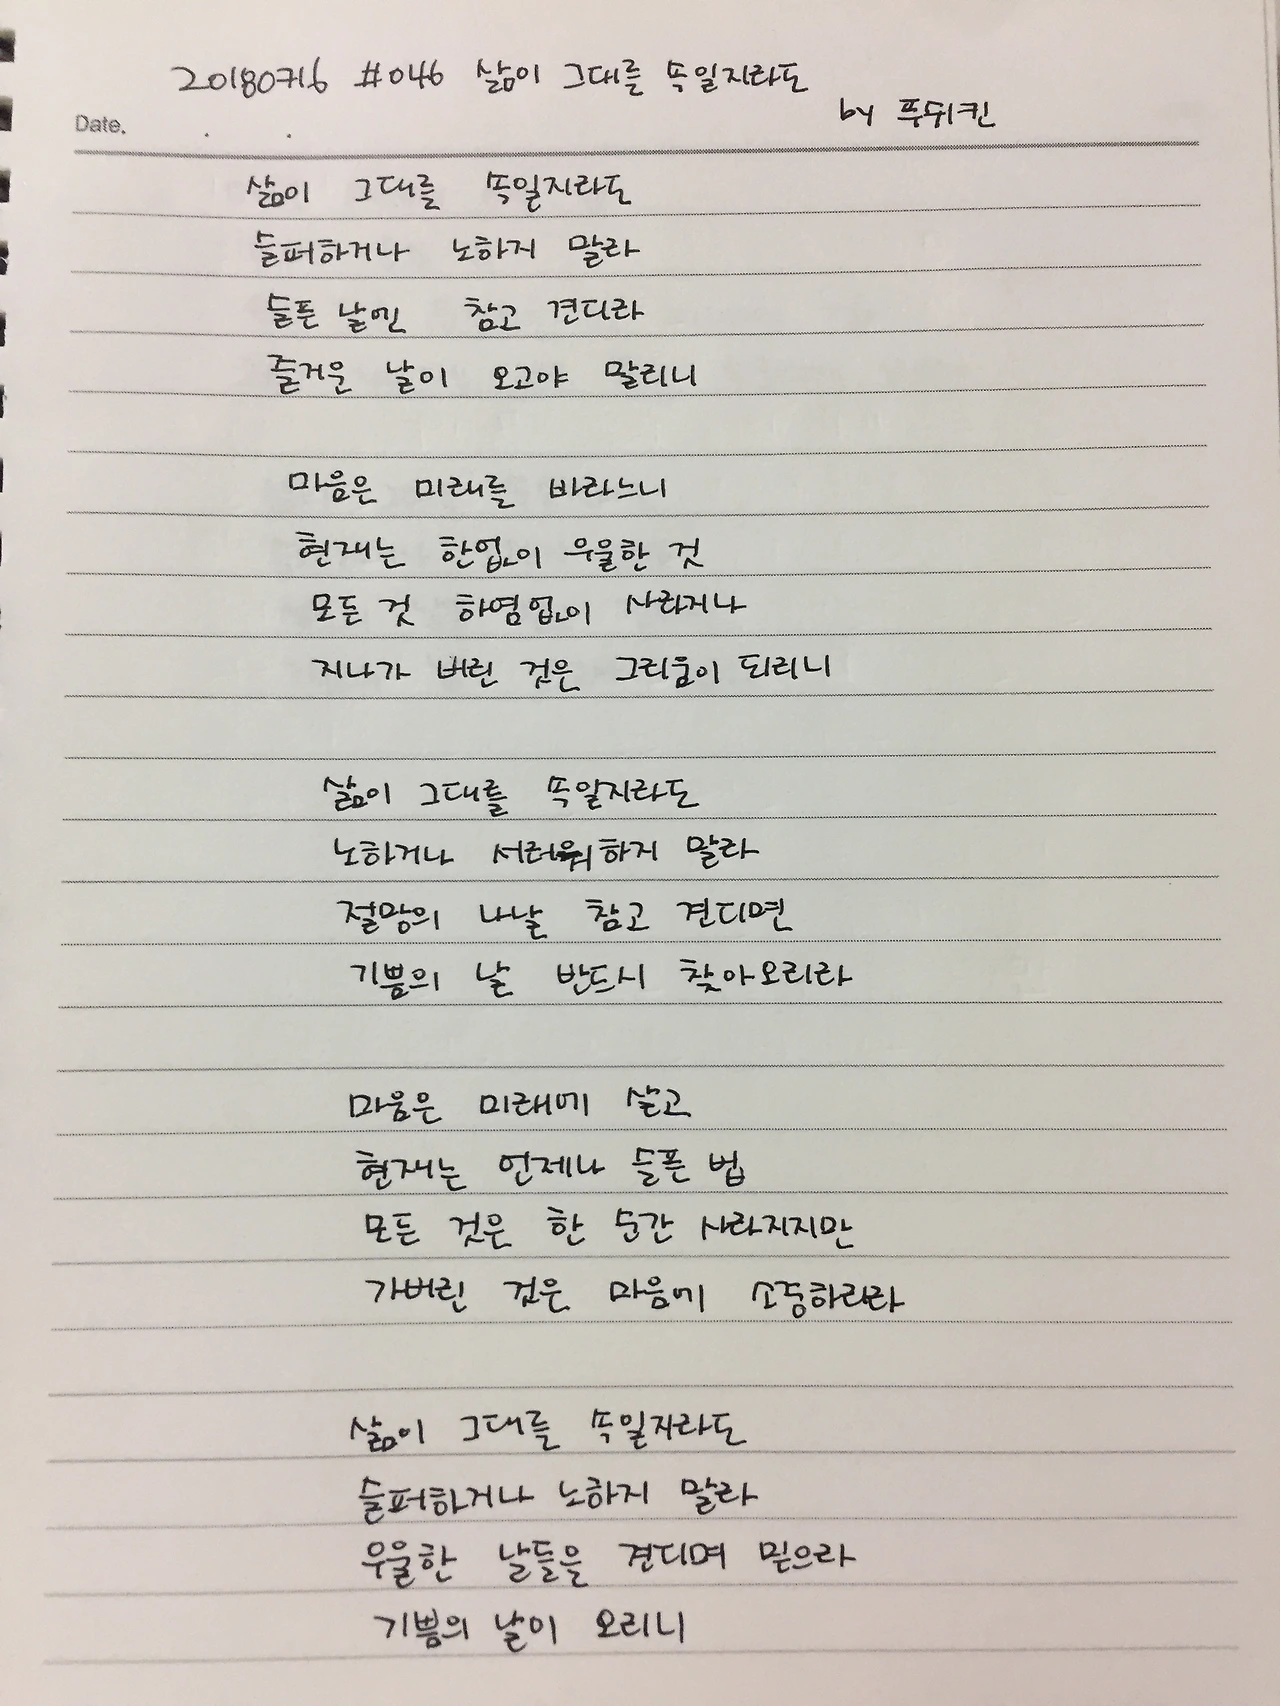 20180716 #046 삶이 그대를 속일지라도
by 푸쉬킨
Date. . .
삶이 그대를 속일지라도
슬퍼하거나 노하지 말라
슬픈 날엔 참고 견디라
즐거운 날이 오고야 말리니
마음은 미래를 바라느니
현재는 한없이 우울한 것
모든 것 하염없이 사라지나
지나가 버린 것은 그리움이 되리니
삶이 그대를 속일지라도
노하거나 서러워하지 말라
절망의 나날 참고 견디면
기쁨의 날 반드시 찾아오리라
마음은 미래에 살고
현재는 언제나 슬픈 법
모든 것은 한 순간 사라지지만
가버린 것은 마음에 소중하리라
삶이 그대를 속일지라도
슬퍼하거나 노하지 말라
우울한 날들을 견디며 믿으라
기쁨의 날이 오리니